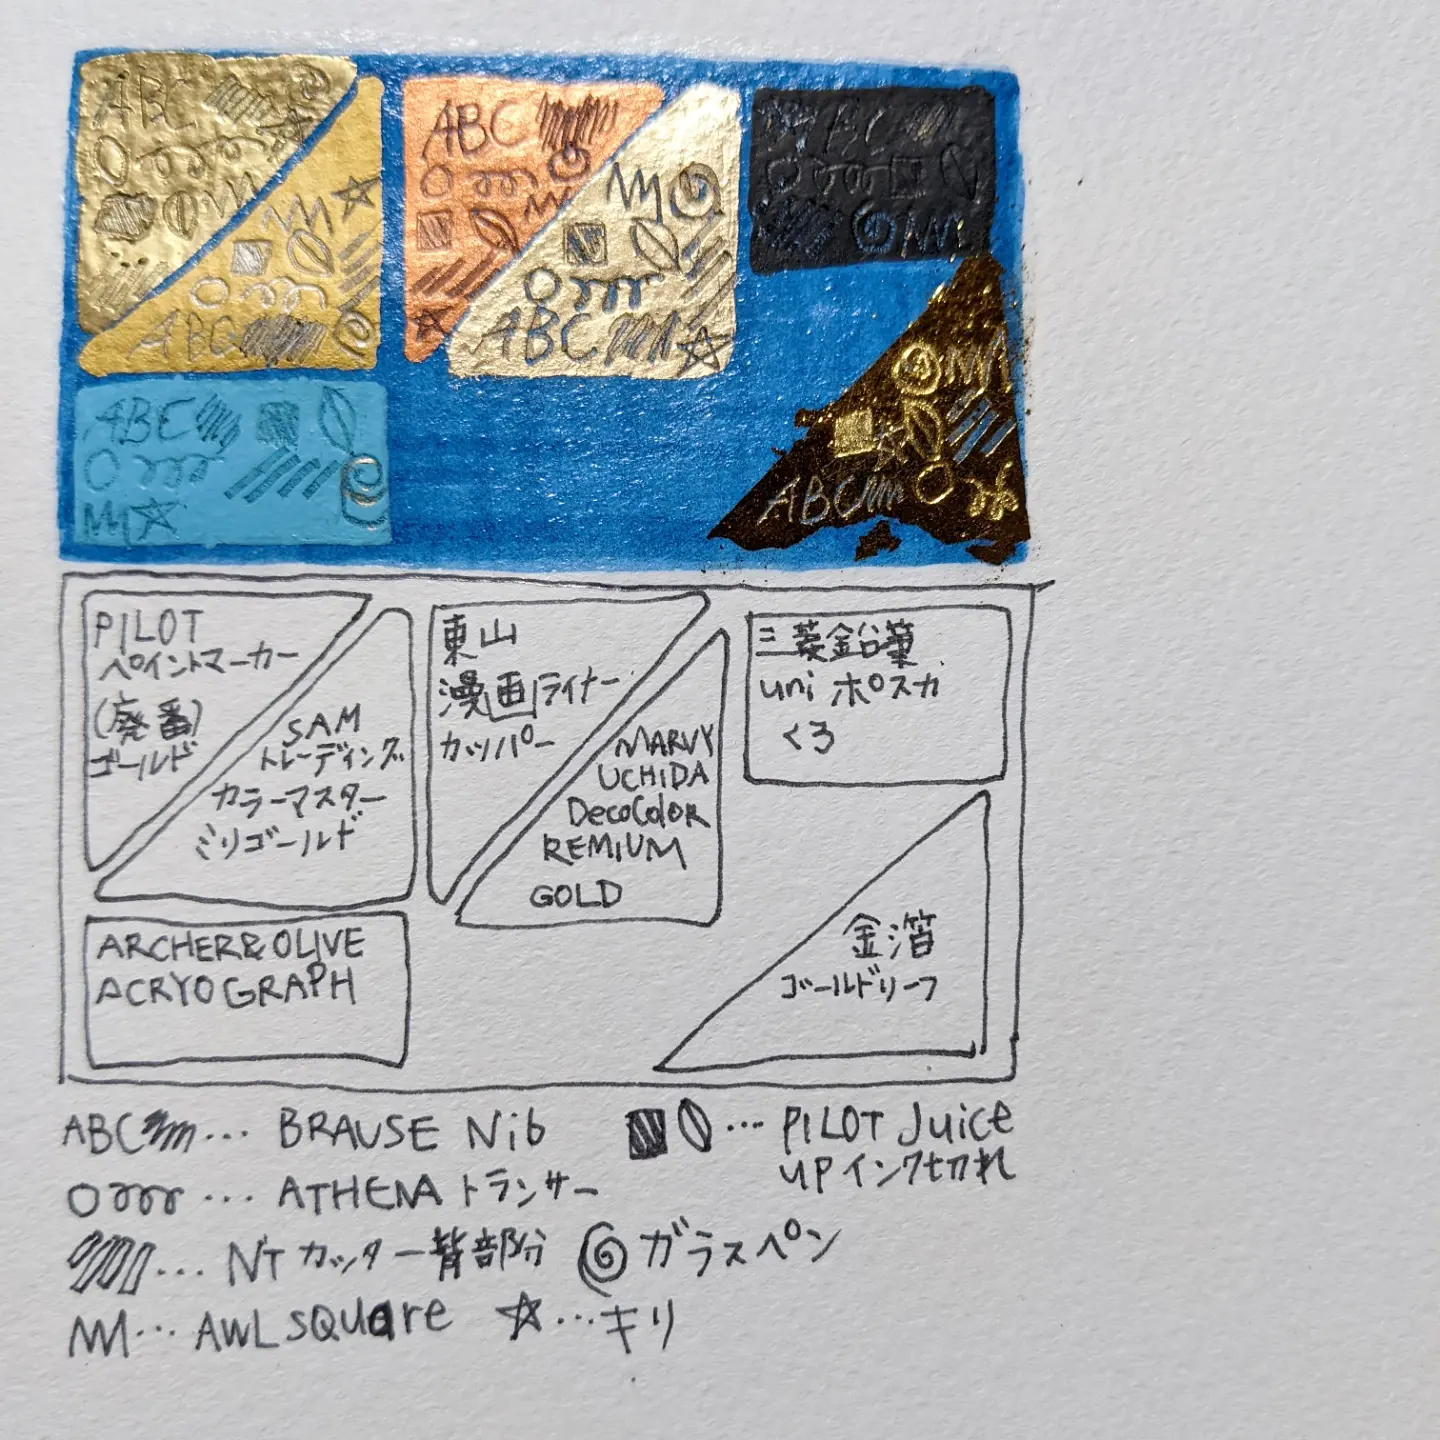 ABC
ABC
ABC
ABC
ABC
ABC
ABC
PILOT
ペイントマーカー
(廃番)
ゴールド
SAM
トレーディング
カラーマスター
ミリゴールド
東山
漫画ライナー
カッパー
MARVY
UCHIDA
DecoColor
REMIUM
GOLD
三菱鉛筆
uni ポスカ
くろ
ARCHER&OLIVE
ACRYOGRAPH
金箔
ゴールドリーフ
ABC ... BRAUSE Nib
... PILOT Juice
UP インク切れ
... ATHENA トランサー
... NT カッター背部分
ガラスペン
... AWL SQUare
☆...キリ